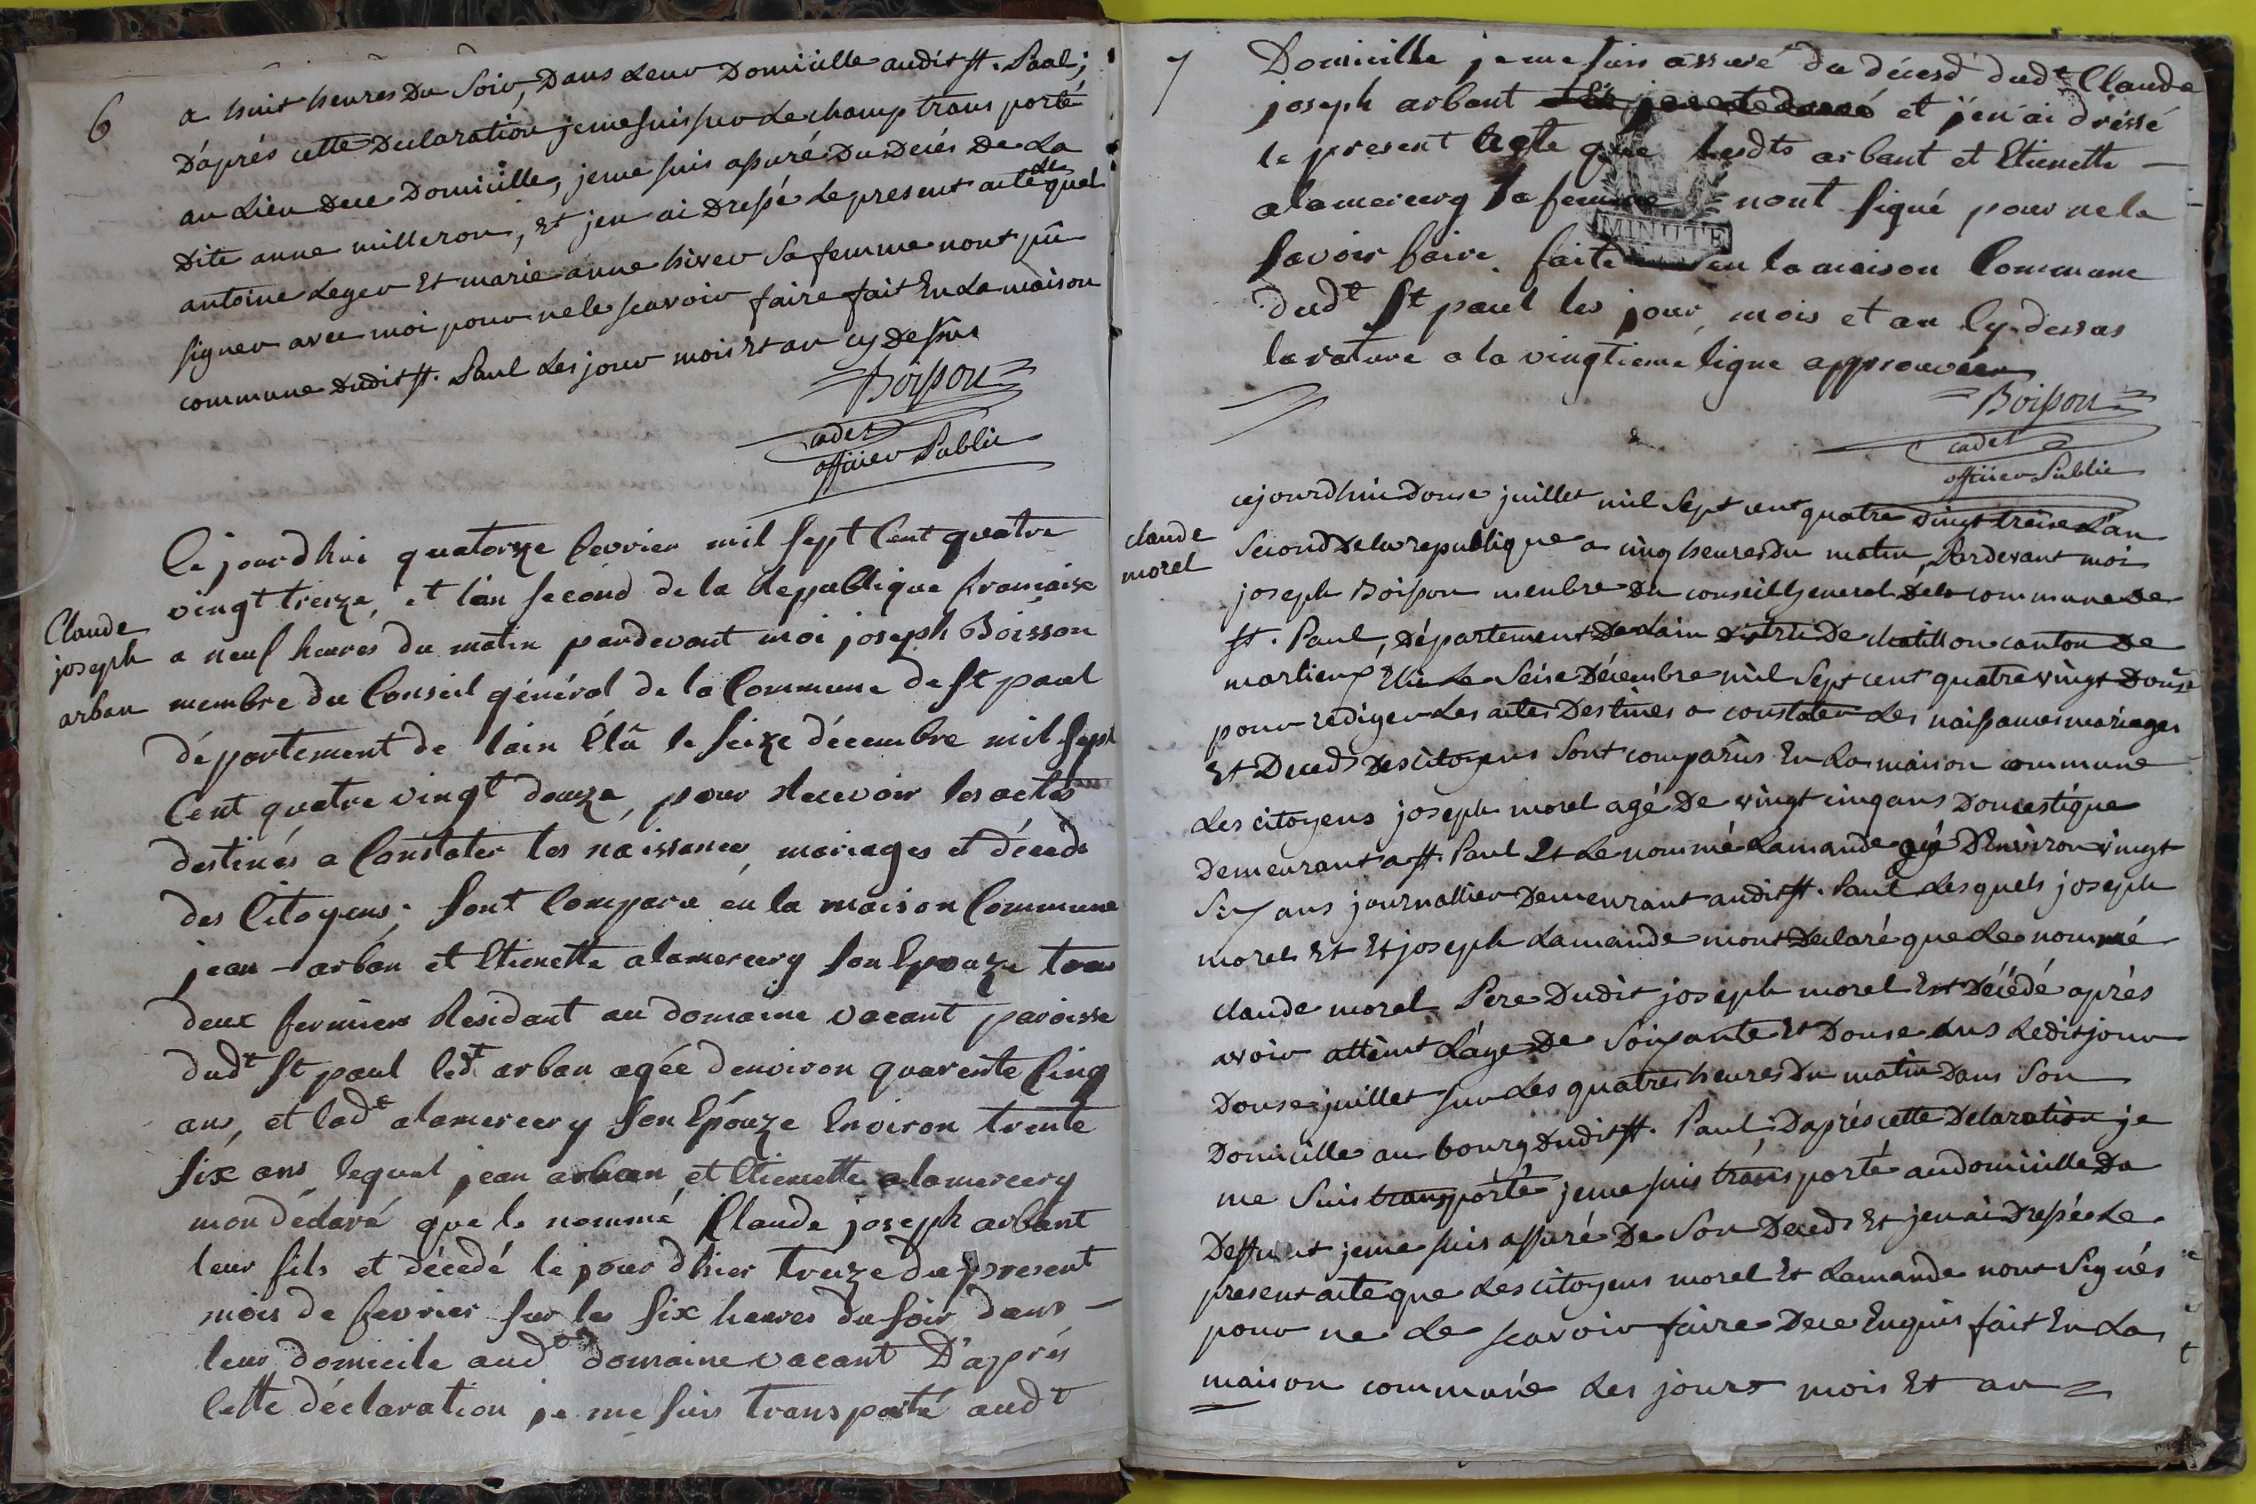 6
a huit heures Du Soir, Dans Leur Domicille audit st. Paul;
D'aprés cette Declaration jeme suis sur Le champ trans porté
au Lieu Dece Domicille, jeme suis assuré Du Decés De La
Dite anne milleron, Et jen ai Dressé Le present acte Le quel
antoine Leger Et marie anne hiver Sa femme nont pû
signer avec moi pour ne le scavoir faire fait En La maison
commune Dudit st. Paul Les jour mois Et an cy Dessus
Boisson
cadet
officier Public
Ce jourd hui quatorze fevrier mil sept Cent quatre
vingt treize, et l'an second de la Republique francaise
Claude
joseph
arban
a neuf heures du matin pardevant moi joseph Boisson
membre du Conseil général de la Commune de St paul
département de lain Elû le seize décembre mil sept
Cent quatre vingt douze, pour Recevoir les actes
destinés a Constater les naissances, mariages et décéds
des Citoyens; sont Comparu en la maison Commune
jean - arban et Etienette alamercery son Epouze tous
deux fermiers Residant au domaine vacant paroisse
dudt St paul ledt arban agée denviron quarente Cinq
ans, et ladte alamercery son Epouze Environ trente
six ans lequel jean arban et Etienette alamercery
mon déclaré que le nommé Claude joseph arbant
leur fils et décedé le jour dhier treize du present
mois de fevrier sur les six heures du soir dans -
leur domicile audt domaine vacant D'aprés
Cette déclaration je me suis transporté audt
7
Domicille je me suis assuré du décesd dudt Claude
joseph arbant et j'en ai dréssé
le present acte que lesdts arbant et Etienette -
alamercery sa femme nont signé pour ne le
savoir faire. faite en la maison Commune
dudt St paul les jour, mois et an Cy-dessus
la rature a la vingtieme ligne approuvéer
MINUTE
Boisson
cadet
officier Public
claude
morel
cejourdhui Douse juillet mil Sept cent quatre vingt treise L'an
Second De La republique a cinq heures du matin, Pardevant moi
joseph Boisson menbre Du conseil General De la commune De
st. Paul, Département De Lain district De chatillon canton De
marlieux Elu Le Seise Décembre mil Sept cent quatre vingt Douse
pour rediger Les actes Destinés a constater Les naissances mariages
Et Deceds Des citoyens Sont comparus En La maison commune
Les citoyens joseph morel agé De vingt cinq ans Domestique
Demeurant a st. Paul Et Le nommé Lamande agé D'Environ vingt
Six ans journallier Demeurant audit st. Paul Lesquels joseph
morel Et Et joseph Lamande mont Declaré que Le nommé
claude morel Pere Dudit joseph morel Est Décédé aprés
avoir attèint L'age De Soixante Et Douse ans Ledit jour
Douse juillet sur Les quatres heures Du matin Dans Son
Domicille au bourg Dudit st. Paul; D'aprés cette Déclaration je
me Suis transporté jeme suis transporté audomicille Du
Deffunt jeme suis assuré De Son Deceds Et jen ai Dressé Le
present acte que Les citoyens morel Et Lamande nont Signés
pour ne Le scavoir faire Dece Enquis fait En La
maison commune Les jours mois Et an